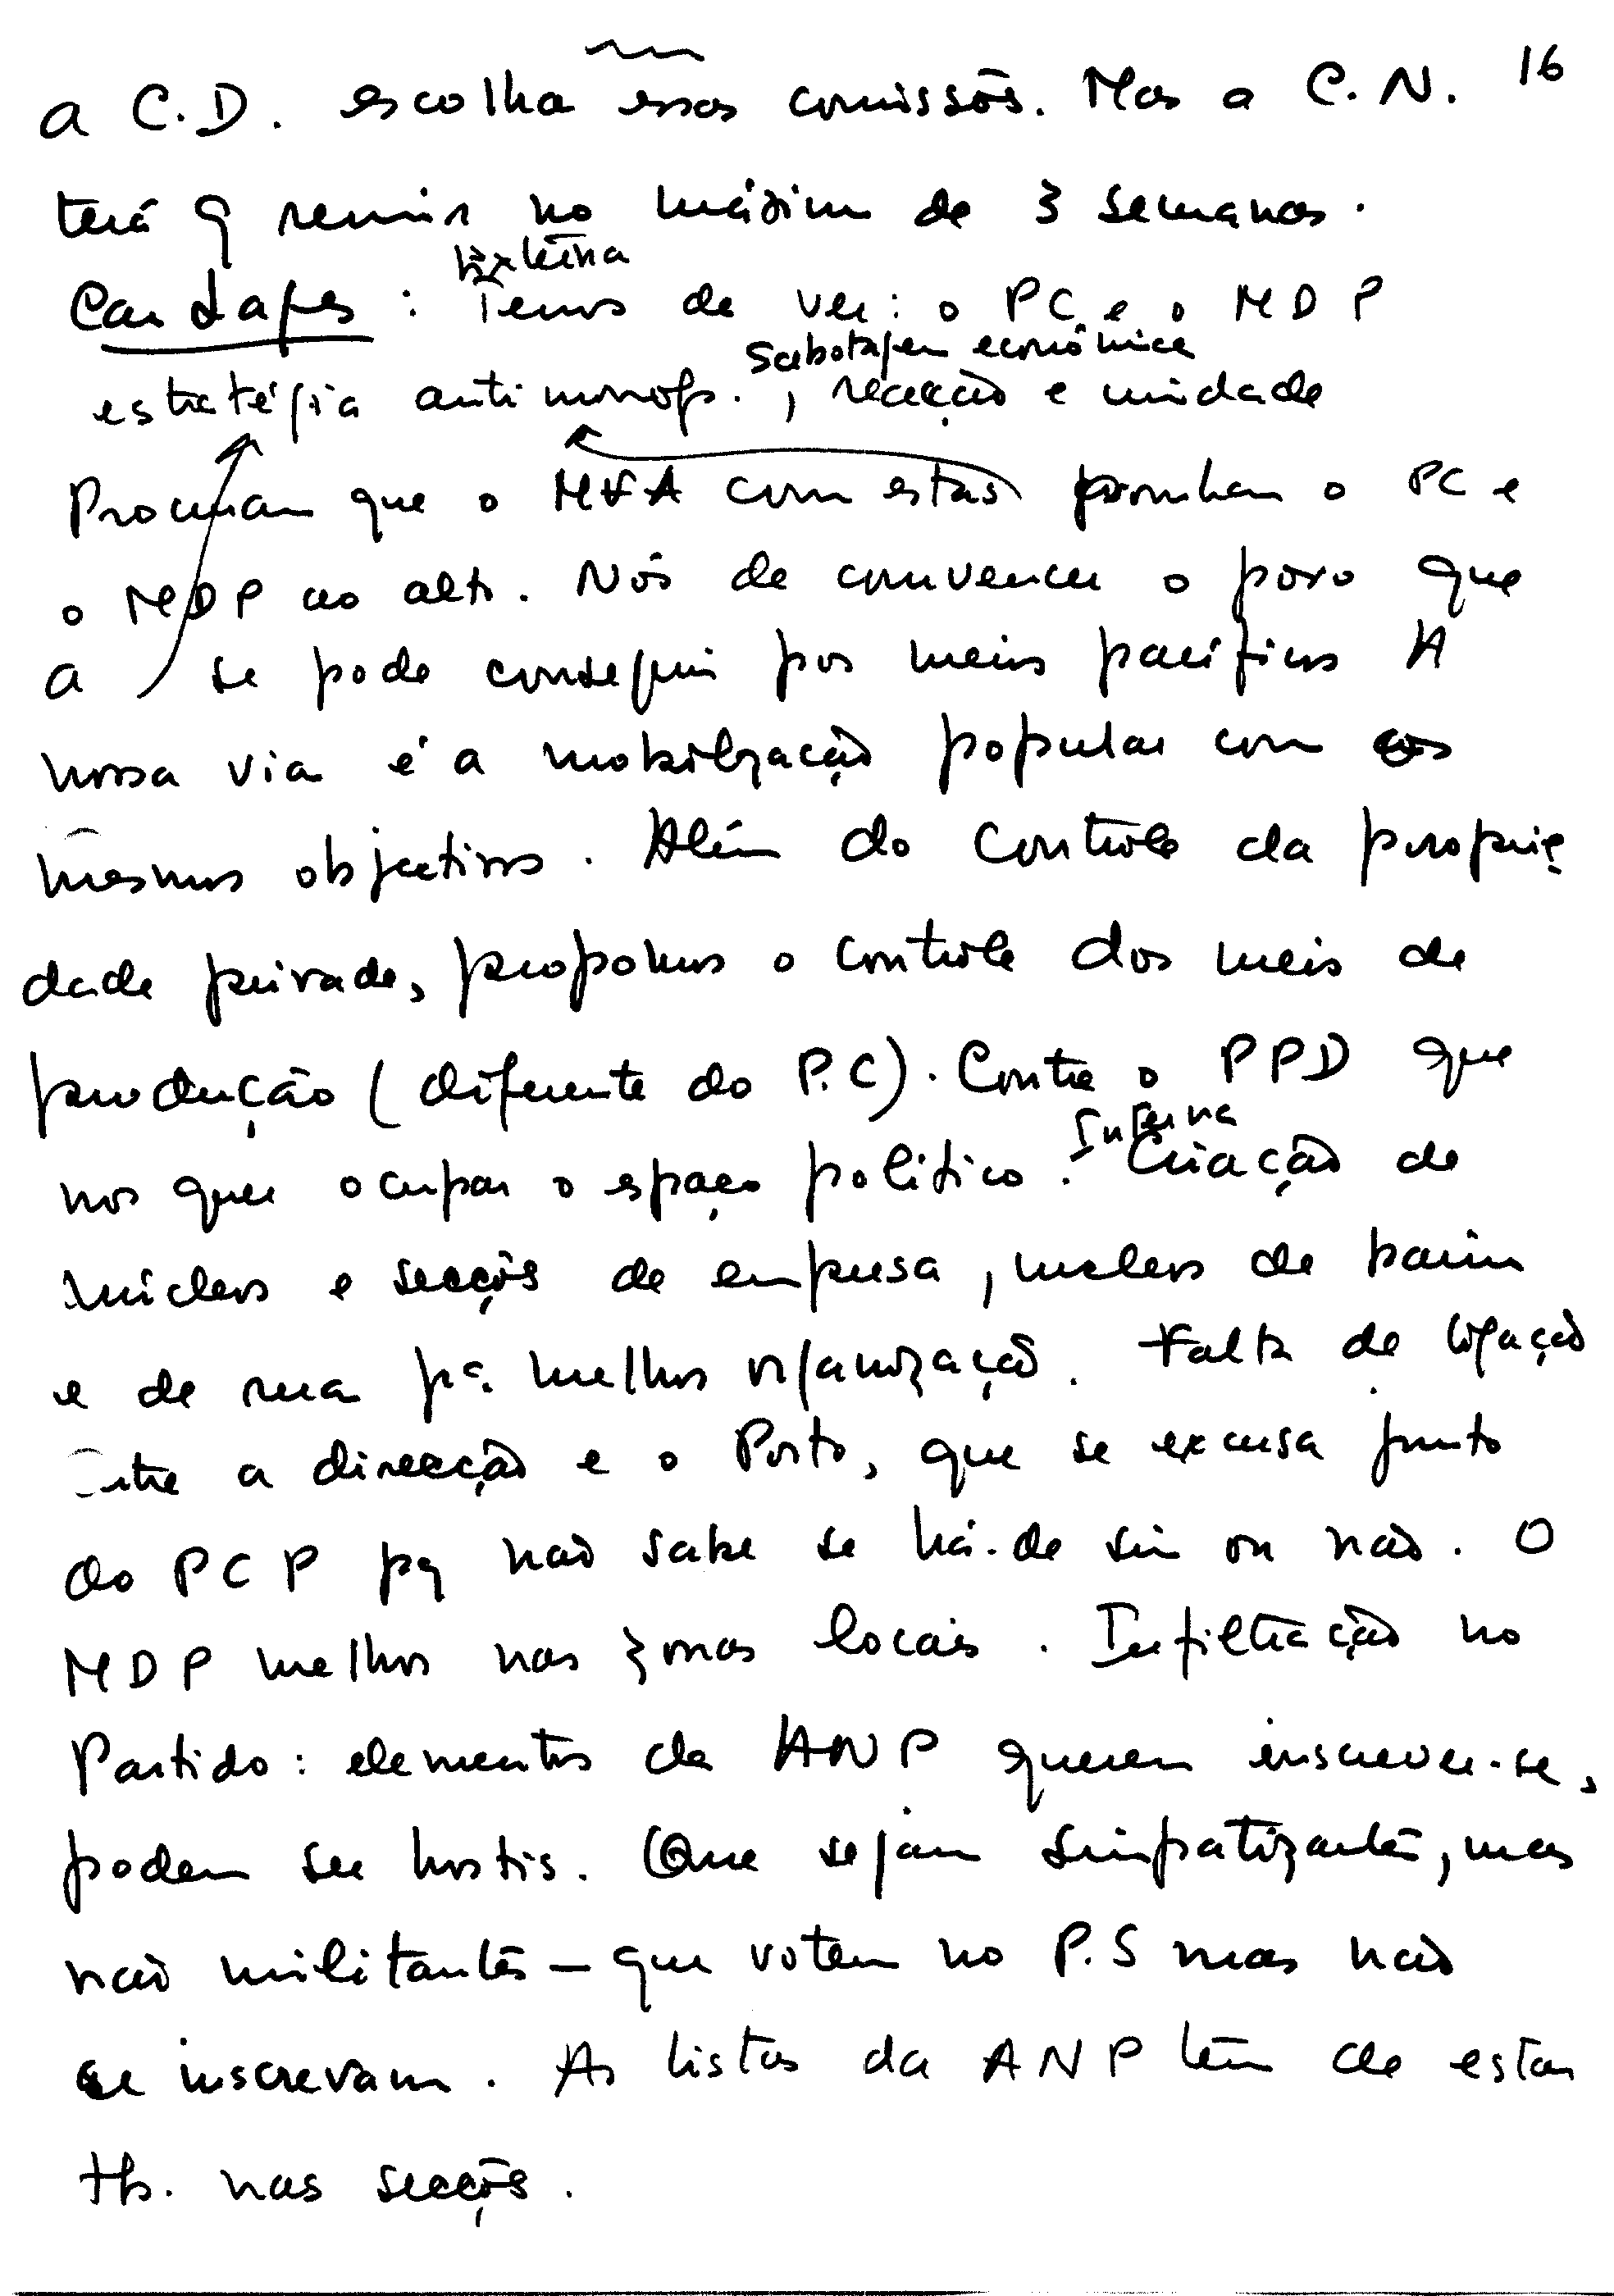 16
a C.D. escolha essas comissões. Mas a C.N.
terá q reunir no máximo de 3 semanas.
Externa
Cardafes: Temos de ver: o PC e o MDP
Sabotagem económica
estratégia antimonop., reacção e unidade
Procuram que o MFA com estas ponham o PC e
o MDP ao alto. Nós de convencer o povo que
a se pode conseguir por meios pacíficos A
nossa via é a mobilização popular com os
mesmos objectivos. Além do controle da proprie
dade privada, propomos o controle dos meios de
produção (diferente do P.C). Contra o PPD que
Interna
nos quer ocupar o espaço político. Criação de
núcleos e secções de empresa, nucleos de bairro
e de rua pª. melhor organização. Falta de ligação
Entre a direcção e o Porto, que se excusa junto
do PCP pq não sabe se há-de sim ou não. O
MDP melhor nas zonas locais. Infiltração no
Partido: elementos da ANP querem inscrever-se,
podem ser hostis. Que sejam simpatizantes, mas
não militantes - que votem no P.S mas não
se inscrevam. As listas da ANP têm de estar
tb. nas secções.